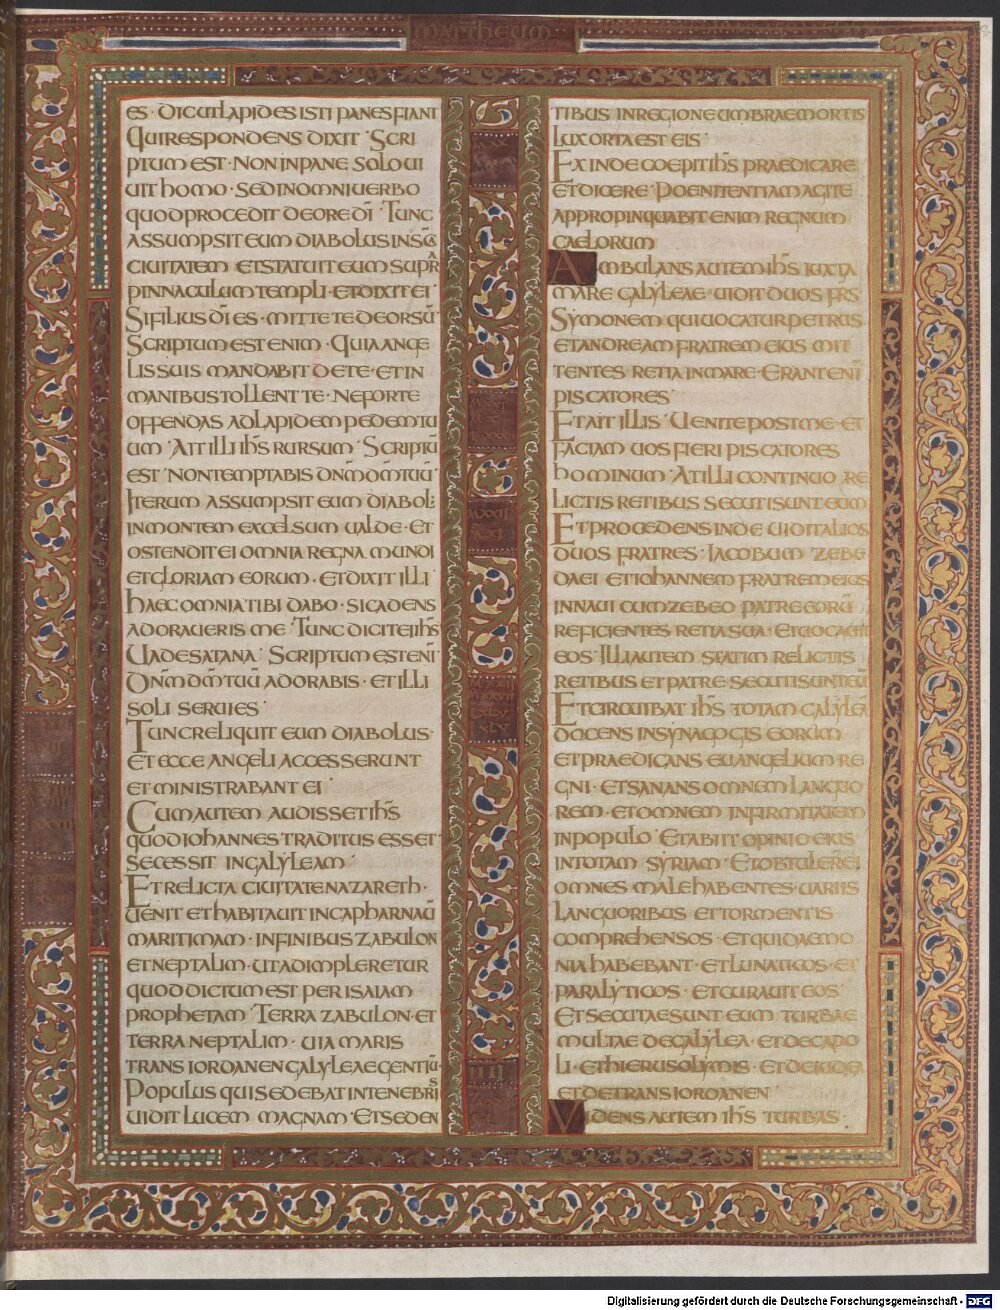 MATTHEUM
ES · DIC UT LAPIDES ISTI PANES FIANT
QUI RESPONDENS DIXIT · SCRI
PTUM EST · NON IN PANE SOLO UI
UIT HOMO · SED IN OMNI UERBO
QUOD PROCEDIT DE ORE DĪ · TUNC
ASSUMPSIT EUM DIABOLUS IN SCĀ
CIUITATEM · ET STATUIT EUM SUPR̄
PINNACULUM TEMPLI · ET DIXIT EI ·
SI FILIUS DĪ ES · MITTE TE DEORSŪ ·
SCRIPTUM EST ENIM · QUIA ANGE
LIS SUIS MANDABIT DE TE · ET IN
MANIBUS TOLLENT TE · NE FORTE
OFFENDAS AD LAPIDEM PEDEM TU
UM · AIT ILLI IHS̄ RURSUM · SCRIPTŪ
EST · NON TEMPTABIS DNM̄ DM̄ TUŪ ·
ITERUM ASSUMPSIT EUM DIABOL:
IN MONTEM EXCELSUM UALDE · ET
OSTENDIT EI OMNIA REGNA MUNDI
ET GLORIAM EORUM · ET DIXIT ILLI ·
HAEC OMNIA TIBI DABO · SI CADENS
ADORAUERIS ME · TUNC DICIT EI IHS̄ ·
UADE SATANA · SCRIPTUM EST ENĪ ·
DNM̄ DM̄ TUŪ ADORABIS · ET ILLI
SOLI SERUIES ·
TUNC RELIQUIT EUM DIABOLUS ·
ET ECCE ANGELI ACCESSERUNT
ET MINISTRABANT EI ·
CUM AUTEM AUDISSET IHS̄
QUOD IOHANNES TRADITUS ESSET ·
SECESSIT IN GALYLEAM ·
ET RELICTA CIUITATE NAZARETH ·
UENIT ET HABITAUIT IN CAPHARNAŪ
MARITIMAM · IN FINIBUS ZABULON
ET NEPTALIM · UT ADIMPLERETUR
QUOD DICTUM EST PER ISAIAM
PROPHETAM · TERRA ZABULON · ET
TERRA NEPTALIM · UIA MARIS
TRANS IORDANEN GALYLEAE GENTIŪ ·
POPULUS QUI SEDEBAT IN TENEBRIS
UIDIT LUCEM MAGNAM · ET SEDEN
TIBUS IN REGIONE UMBRAE MORTIS
LUX ORTA EST EIS ·
EXINDE COEPIT IHS̄ PRAEDICARE
ET DICERE · POENITENTIAM AGITE
APPROPINQUABIT ENIM REGNUM
CAELORUM
AMBULANS AUTEM IHS̄ IUXTA
MARE GALYLEAE · UIDIT DUOS FRS̄
SYMONEM QUI UOCATUR PETRUS
ET ANDREAM FRATREM EIUS MIT
TENTES RETIA IN MARE · ERANT ENĪ
PISCATORES ·
ET AIT ILLIS · UENITE POST ME · ET
FACIAM UOS FIERI PISCATORES
HOMINUM · AT ILLI CONTINUO RE
LICTIS RETIBUS SECUTI SUNT EUM
ET PROCEDENS INDE UIDIT ALIOS
DUOS FRATRES · IACOBUM ZEBE
DAEI ET IOHANNEM FRATREM EIUS
IN NAUI CUM ZEBEO PATRE EORŪ
REFICIENTES RETIA SUA · ET UOCAUIT
EOS · ILLI AUTEM STATIM RELICTIS
RETIBUS ET PATRE SECUTI SUNT EŪ
ET CIRCUIBAT IHS̄ TOTAM GALYLEĀ
DOCENS IN SYNAGOGIS EORUM
ET PRAEDICANS EUANGELIUM RE
GNI · ET SANANS OMNEM LANGUO
REM · ET OMNEM INFIRMITATEM
IN POPULO · ET ABIIT OPINIO EIUS
IN TOTAM SYRIAM · ET OBTULER̄ EI
OMNES MALE HABENTES · UARIIS
LANGUORIBUS ET TORMENTIS
COMPREHENSOS · ET QUI DAEMO
NIA HABEBANT · ET LUNATICOS · ET
PARALYTICOS · ET CURAUIT EOS ·
ET SECUTAE SUNT EUM TURBAE
MULTAE DE GALYLEA · ET DECAPO
LI · ET HIERUSOLYMIS · ET DE IUDEA
ET DE TRANS IORDANEN
VIDENS AUTEM IHS̄ TURBAS
Digitalisierung gefördert durch die Deutsche Forschungsgemeinschaft - DFG